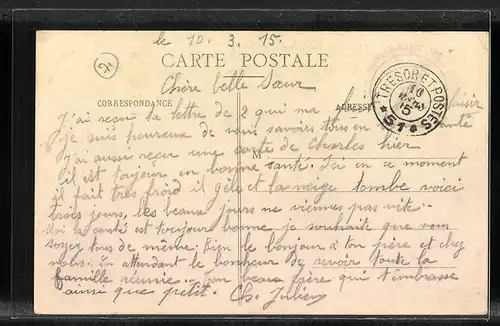 le 10. 3. 15.
CARTE POSTALE
Chère belle Sœur
CORRESPONDANCE
ADRESSE
TRESOR ET POSTES
10
15
* 51 *
J'ai reçu la lettre de 2 qui ma plaisir
je suis heureuse de vous savoirs tous en santé
J'ai aussi reçu une carte de Charles hier
M
il est toujour en bonne santé. Ici en ce moment
il fait très froid il gèle et la neige tombe voici
trois jours, les beaux jours ne viennes pas vite.
Moi la santé est toujour bonne je souhaite que vous
soyez tous de même; bien le bonjour à ton père et chez
nous. En attendant le bonheur de revoir toute la
famille réunie. ton beau frère qui t'embrasse
ainsi que petit. Ch. Julien